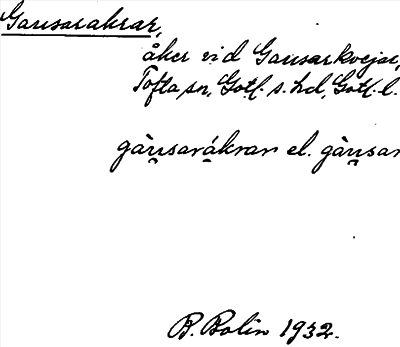 Gausarakrar,
åker vid Gausarkvejar,
Tofta sn, Gotl. s. hd, Gotl. l.
gàu̯sarákrar el. gàu̯sar
B. Bolin 1932.